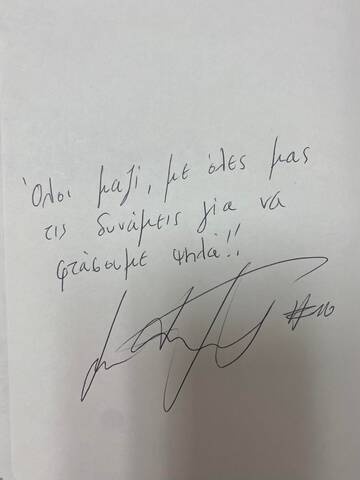 Όλοι μαζί, με όλες μας
τις δυνάμεις για να
φτάσουμε ψηλά!!
#10